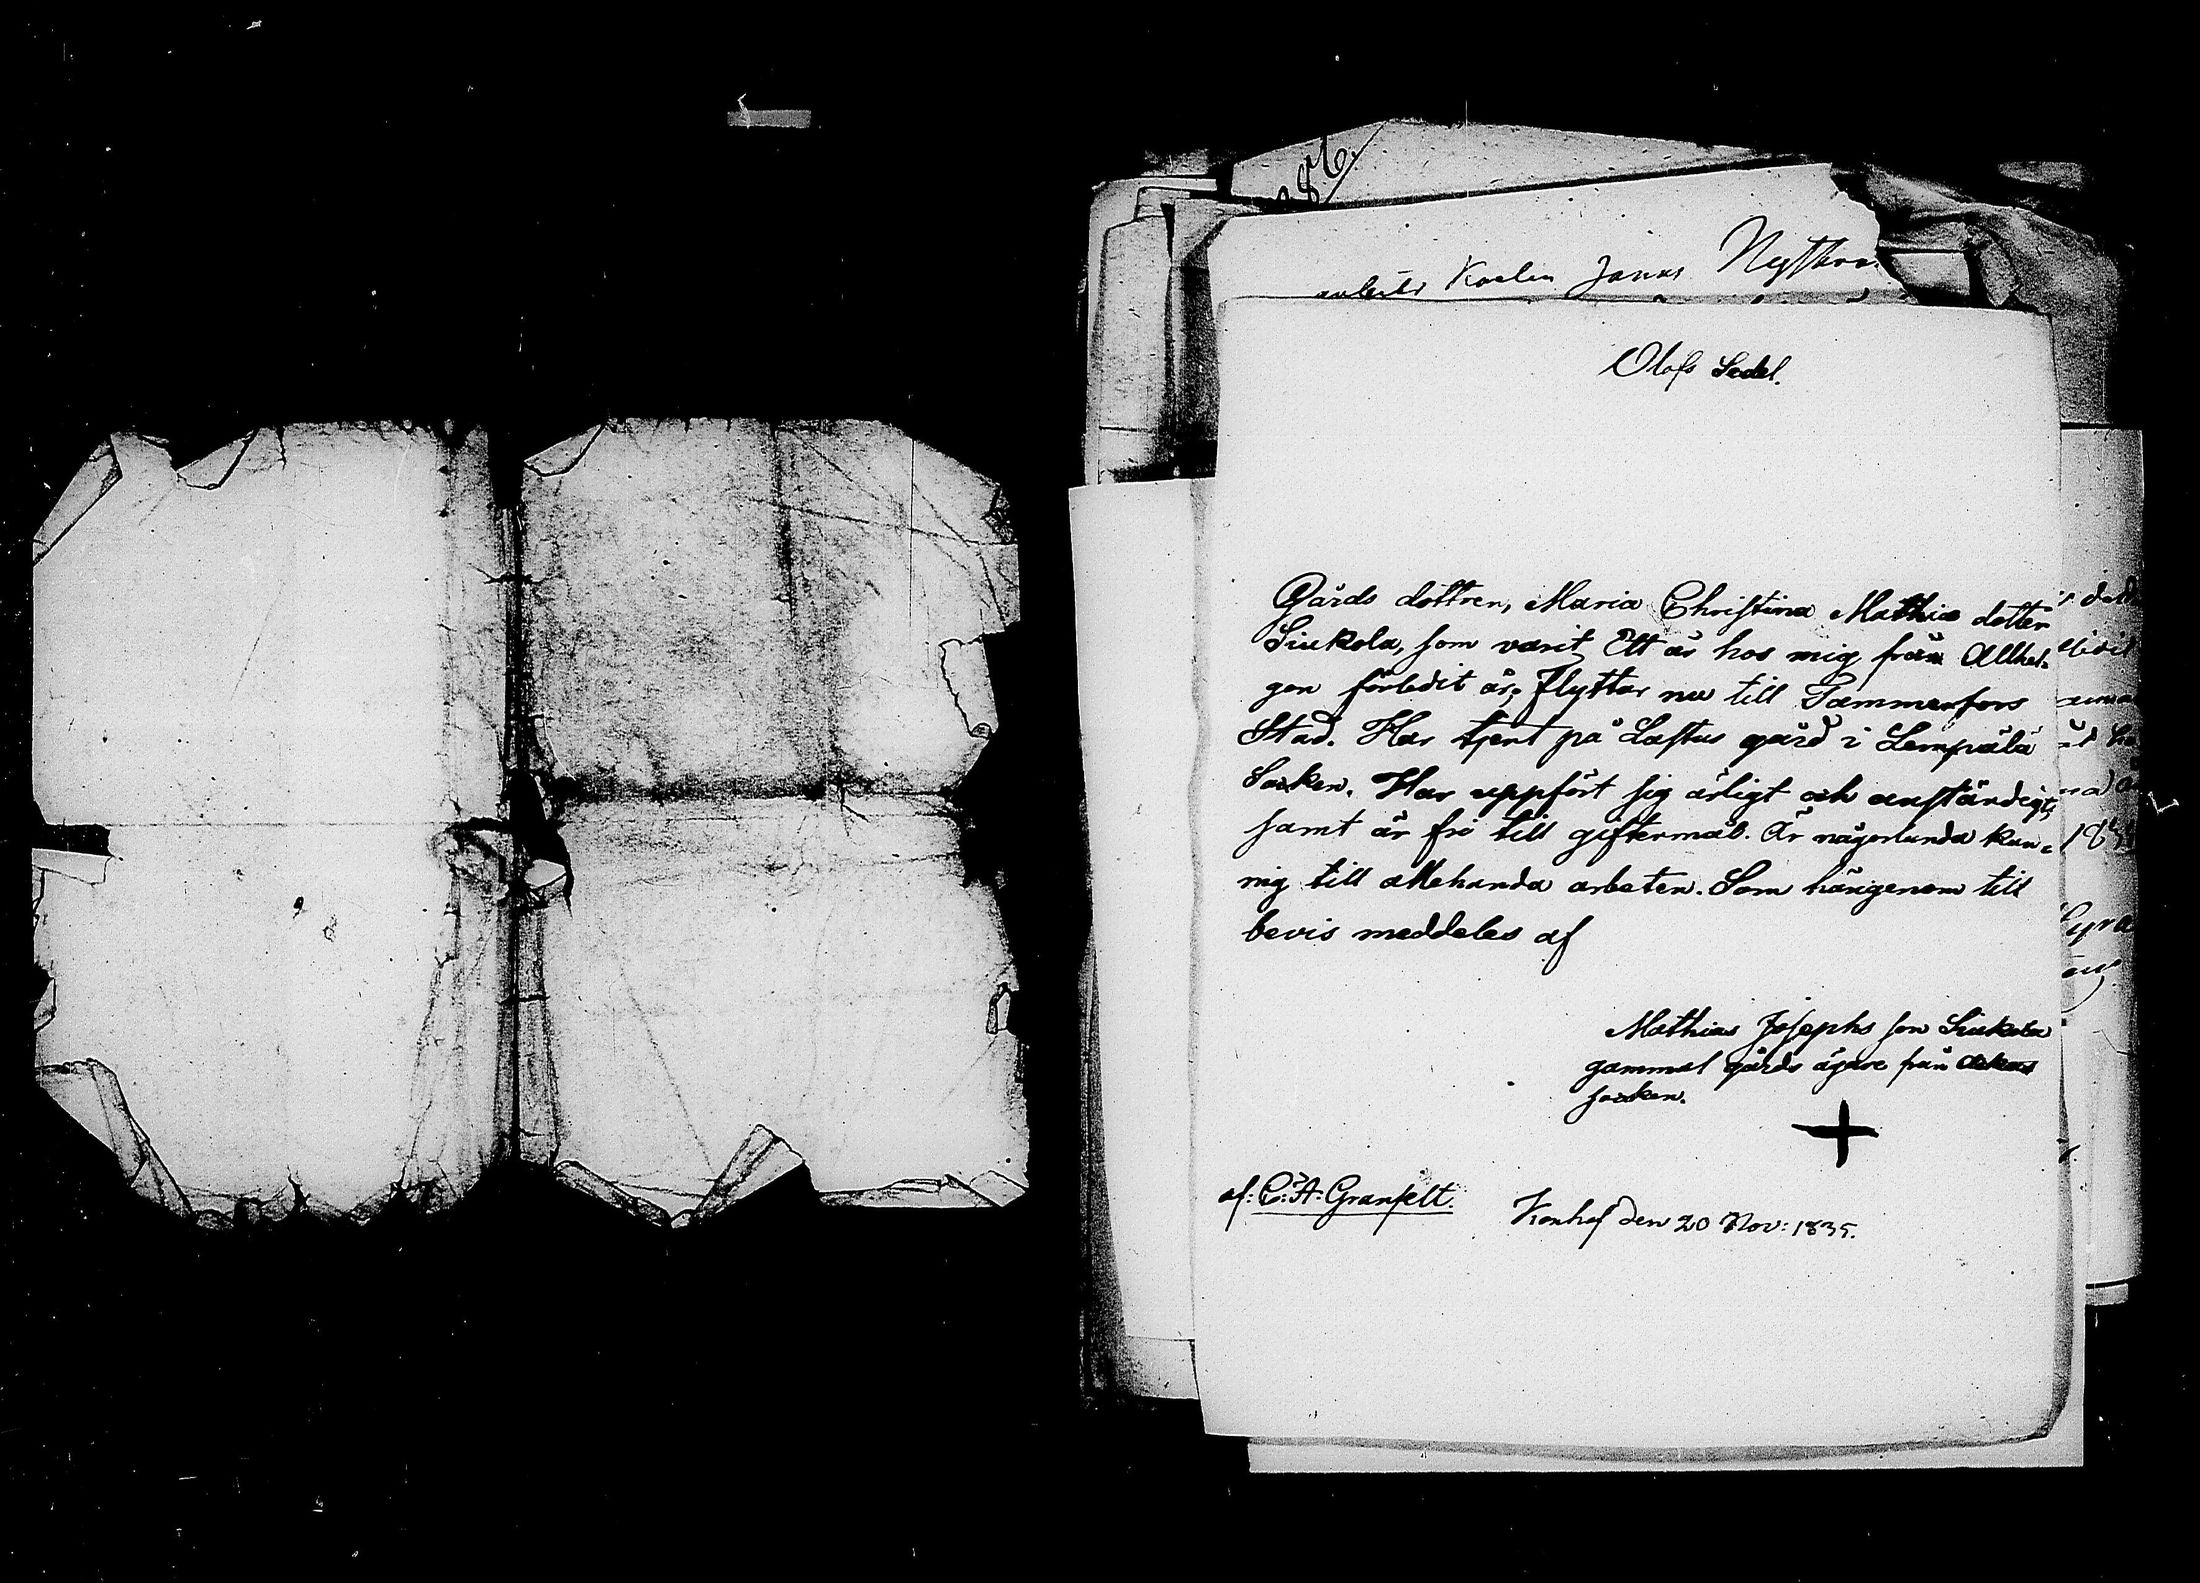 Jonas
Olofs Sedel.
Gårds dottren, Maria Christina Mathie dotter
Siukola, som varit Ett år hos mig från Allhel-
gon förledit år; Flyttar nu till Tammerfors
Stad. Har tjent på Laftus gård i Lempälä
Socken. Har uppfört sig ärligt och anständigt
samt är fri till giftermål. Är någorlunda kun-
nig till allehanda arbeten. Som härigenom till
bevis meddeles af
Mathias Josephs son Siukola
gammal gårds ägare från Ackas
socken.
af: C: A: Granfelt.
Konhof den 20 Nov: 1835.